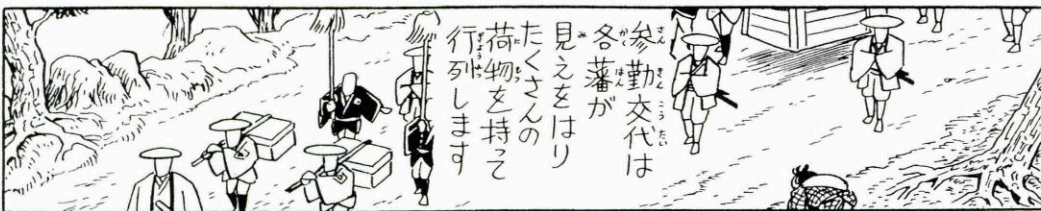 参勤交代は
各藩が
見えをはり
たくさんの
荷物を持って
行列します